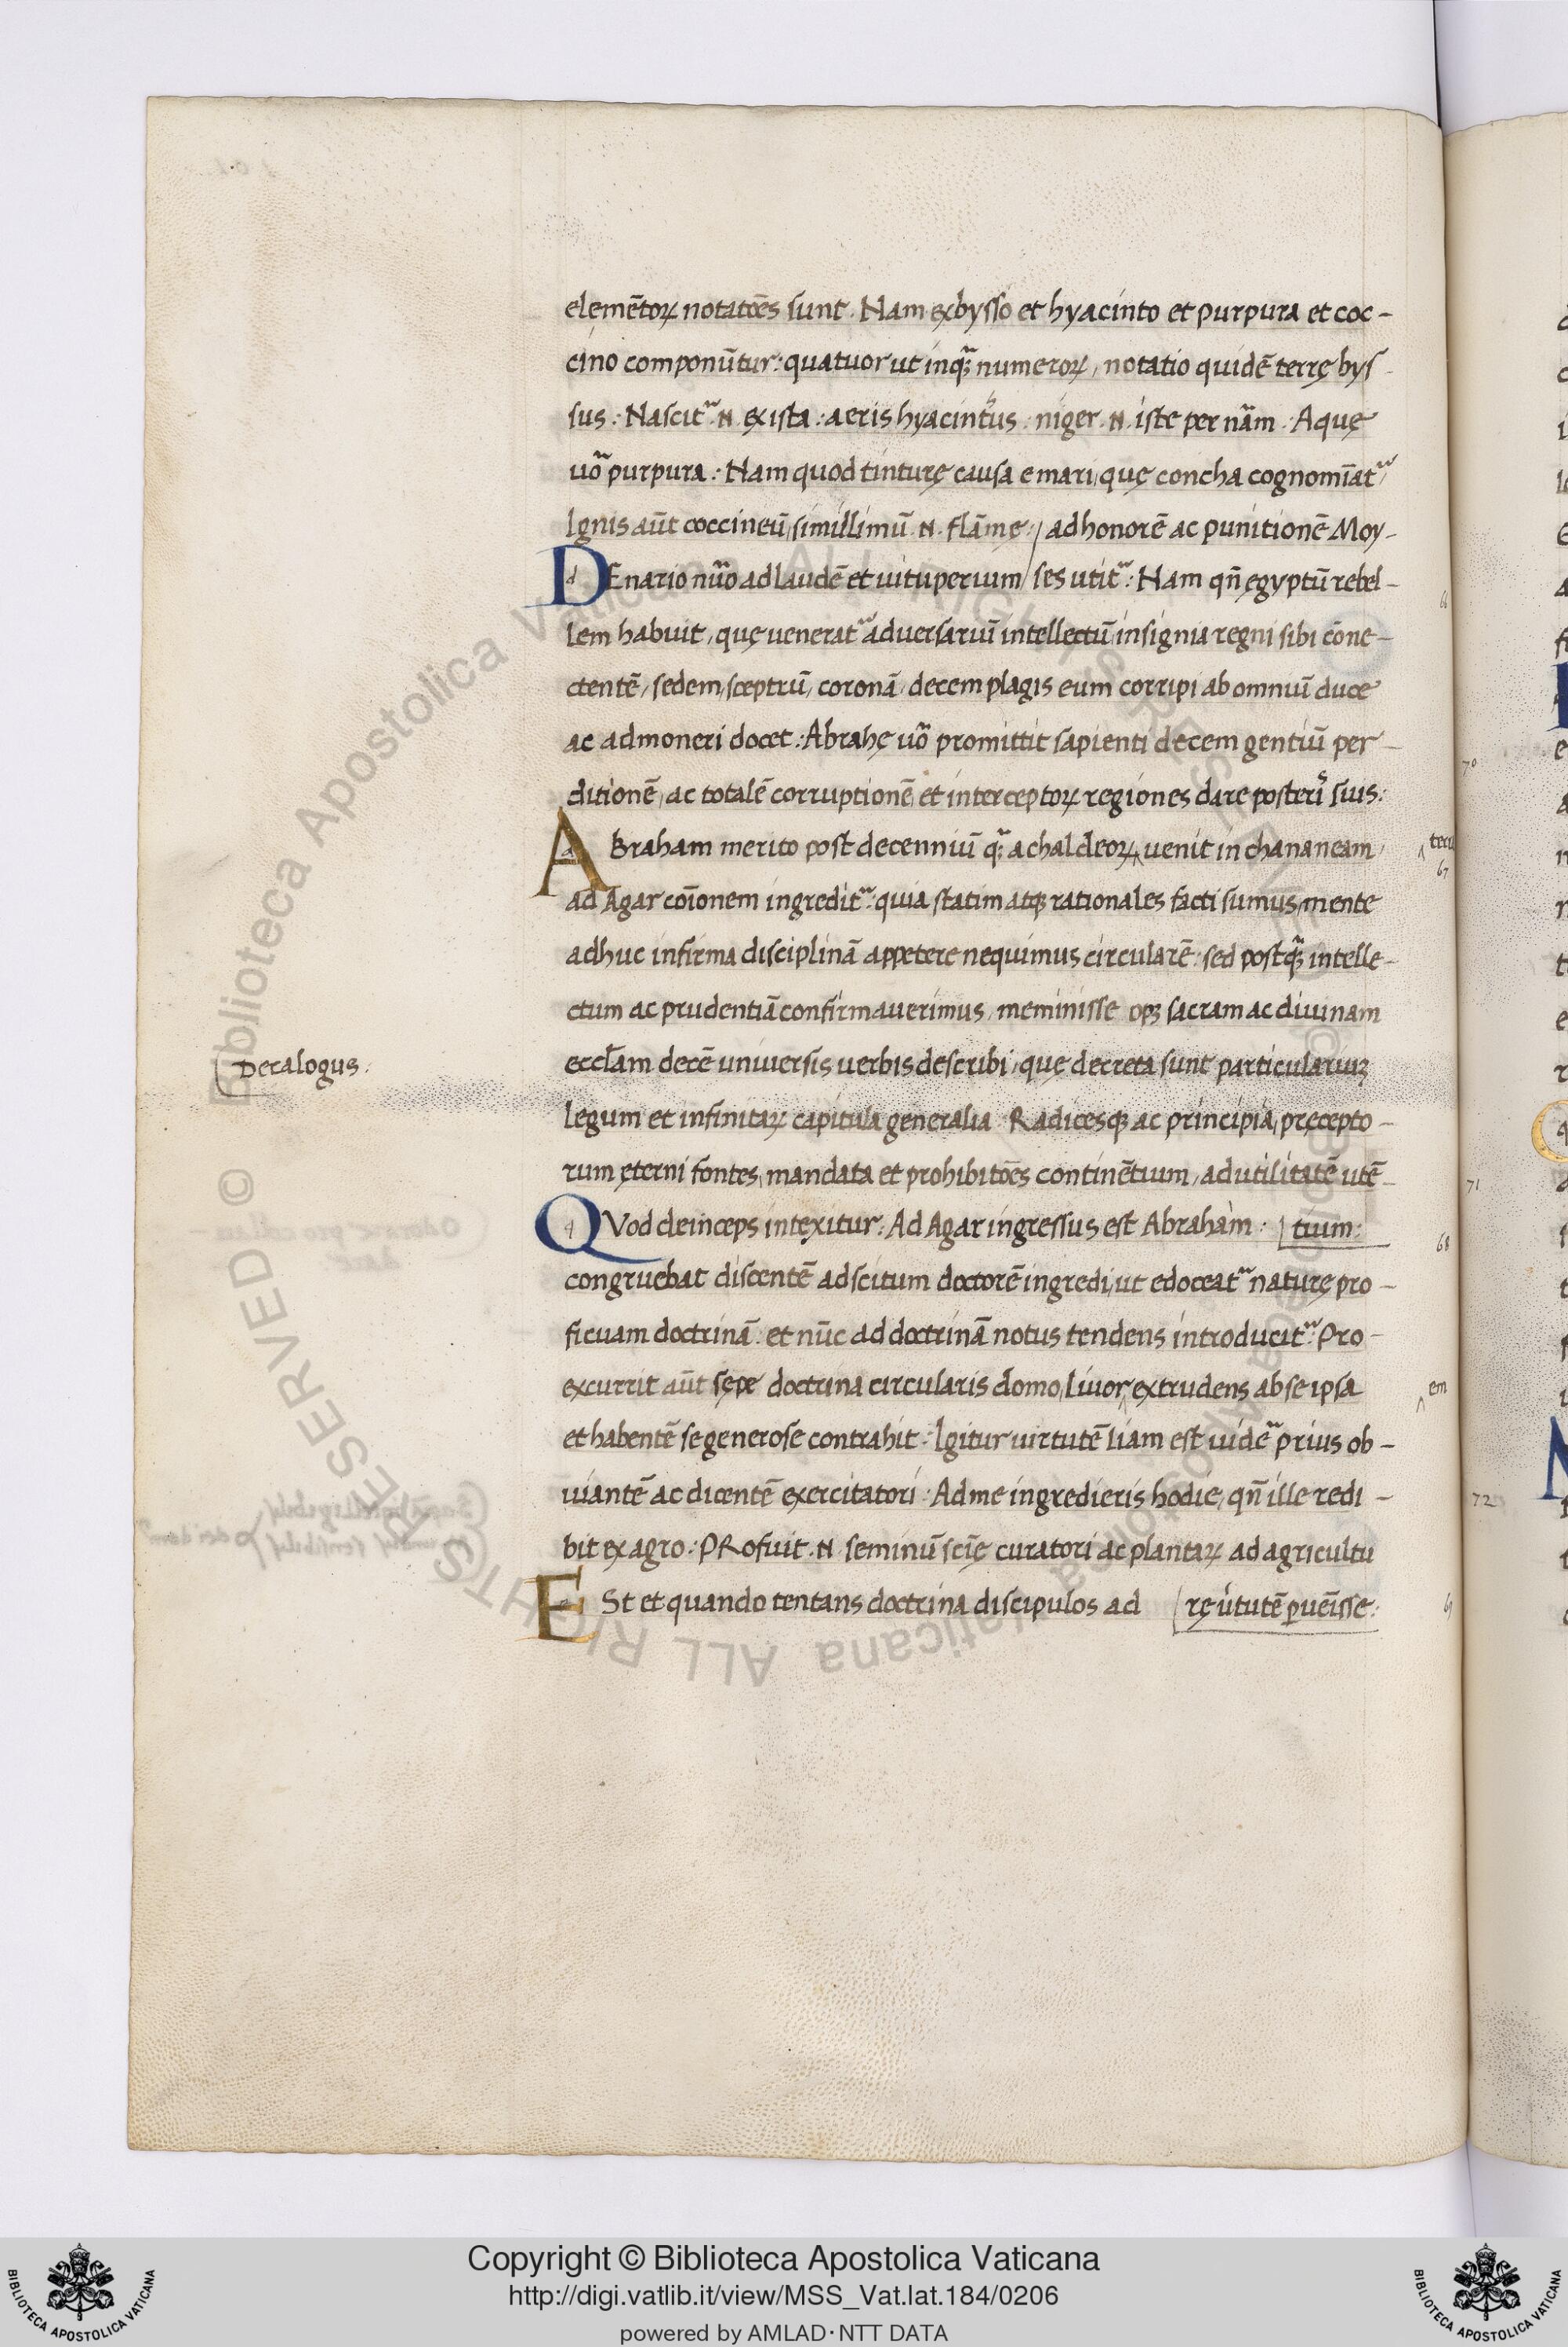 elemētoꝝ notatōes sunt. Nam ex bysso et hyacinto et purpura et coc-
cino componūtur: quatuor ut inqᷓ numeroꝝ, notatio quidē terrę bys-
sus: Nascitᷓ .N. ex ista: aeris hyacintus: niger .N. iste per nām. Aquę
uo purpura: Nam quod tinturę causa e mari, quę concha cognomīatᷓ
Ignis aūt coccineū, simillimū .N. flāmę: / ad honorē ac punitionē Moy-
DEnario nūo ad laudē et uituperium / ses utitᷓ: Nam qn̄ ęgyptū rebel-
lem habuit, quę ueneratᷓ aduersariū intellectū insignia regni sibi cōne-
ctentē, sedem, sceptrū, coronā, decem plagis eum corripi ab omniū duce
ac admoneri docet: Abrahę uo promittit sapienti decem gentiū per-
ditionē, ac totalē corruptionē et interceptoꝝ regiones dare posteris suis:
66
ABraham merito post decenniū qᷓ a chaldeoꝝ ‸ uenit in chananeam,
‸ terra
67
ad Agar coīonem ingreditᷓ: quia statim atqꝫ rationales facti sumus, mente
adhuc infirma disciplinā appetere nequimus circularē: sed postqᷓ intelle-
ctum ac prudentiā confirmauerimus, meminisse opꝫ sacram ac diuinam
eccl̄am decē uniuersis uerbis describi, quę decreta sunt particulariuꝫ
Decalogus.
legum et infinitaꝝ capitula generalia. Radicesqꝫ ac principia, pręcepto-
rum ęterni fontes, mandata et prohibitōes continētium, ad utilitatē utē-
QVod deinceps intexitur: Ad Agar ingressus est Abraham: / tium:
68
congruebat discentē adscitum doctorē ingredi, ut edoceatᷓ naturę pro-
ficuam doctrinā: et nūc ad doctrinā notus tendens introducitᷓ: Pro-
excurrit aūt sępe doctrina circularis domo, liuor ‸ extrudens ab se ipsa
‸ em
et habentē se generose contrahit: Igitur uirtutē liam est uidē prius ob-
uiantē ac dicentē exercitatori: Ad me ingredieris hodie, qn̄ ille redi-
bit ex agro: PRofuit .N. seminū sciē curatori ac plantaꝝ ad agricultu
ESt et quando tentans doctrina discipulos ad / rę ūtutē ꝑuēisse: